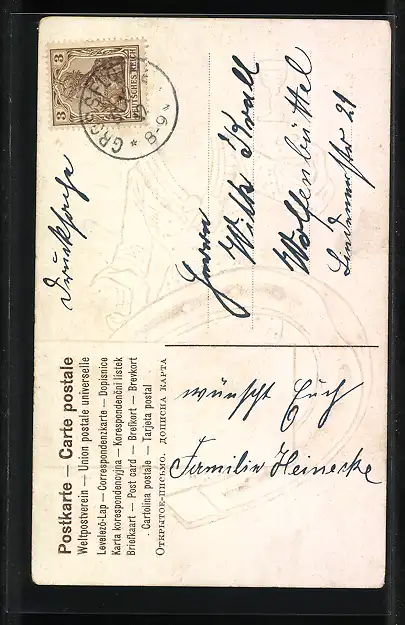 Postkarte — Carte postale
Weltpostverein — Union postale universelle
Levelező-Lap — Correspondenzkarte — Dopisnice
Karta korespondencyjna — Korespondenční listek
Briefkaart — Post card — Brefkort — Brevkort
Cartolina postale — Tarjeta postal
Открытое-письмо. дописна карта
3 3
DEUTSCHES REICH
8-9
Drucksache
Herrn
Wilh. Krall
Wolfenbüttel
21
wünscht Euch
Familie Heinecke